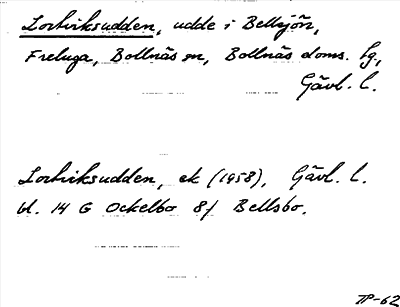 Lortviksudden, udde i Bellsjön,
Freluga, Bollnäs sn, Bollnäs doms. hg,
Gävl. l.
Lortviksudden, ek (1958), Gävl. l.
bl. 14 G Ockelbo 8f Bellsbo.
TP-62